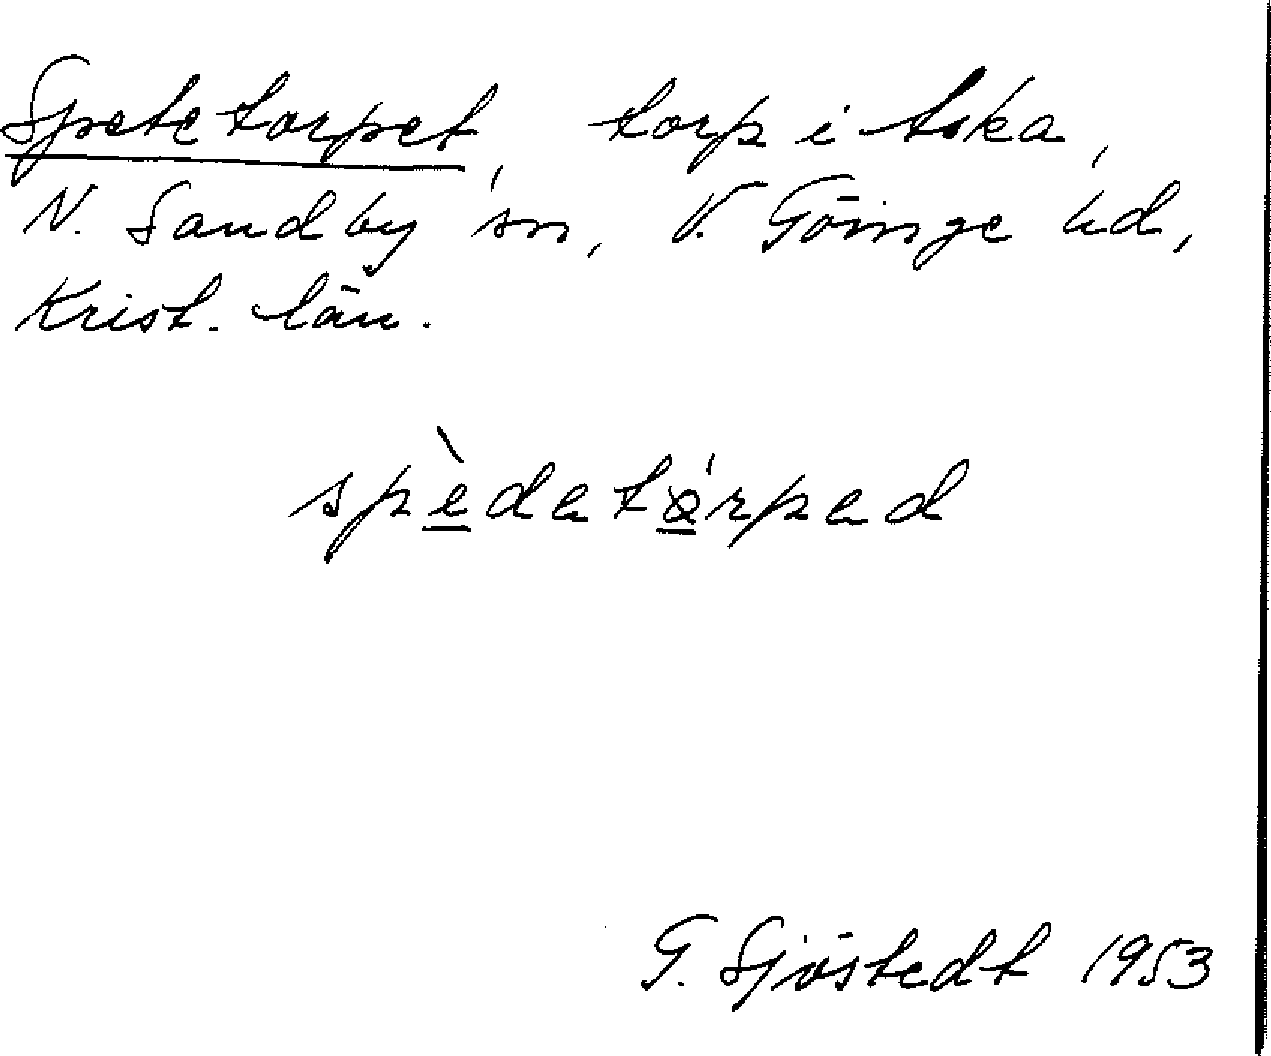 Spetetorpet, torp i Aska,
N. Sandby sn, V. Göinge hd,
Krist. län.
spèdetǿrped
G. Sjöstedt 1953